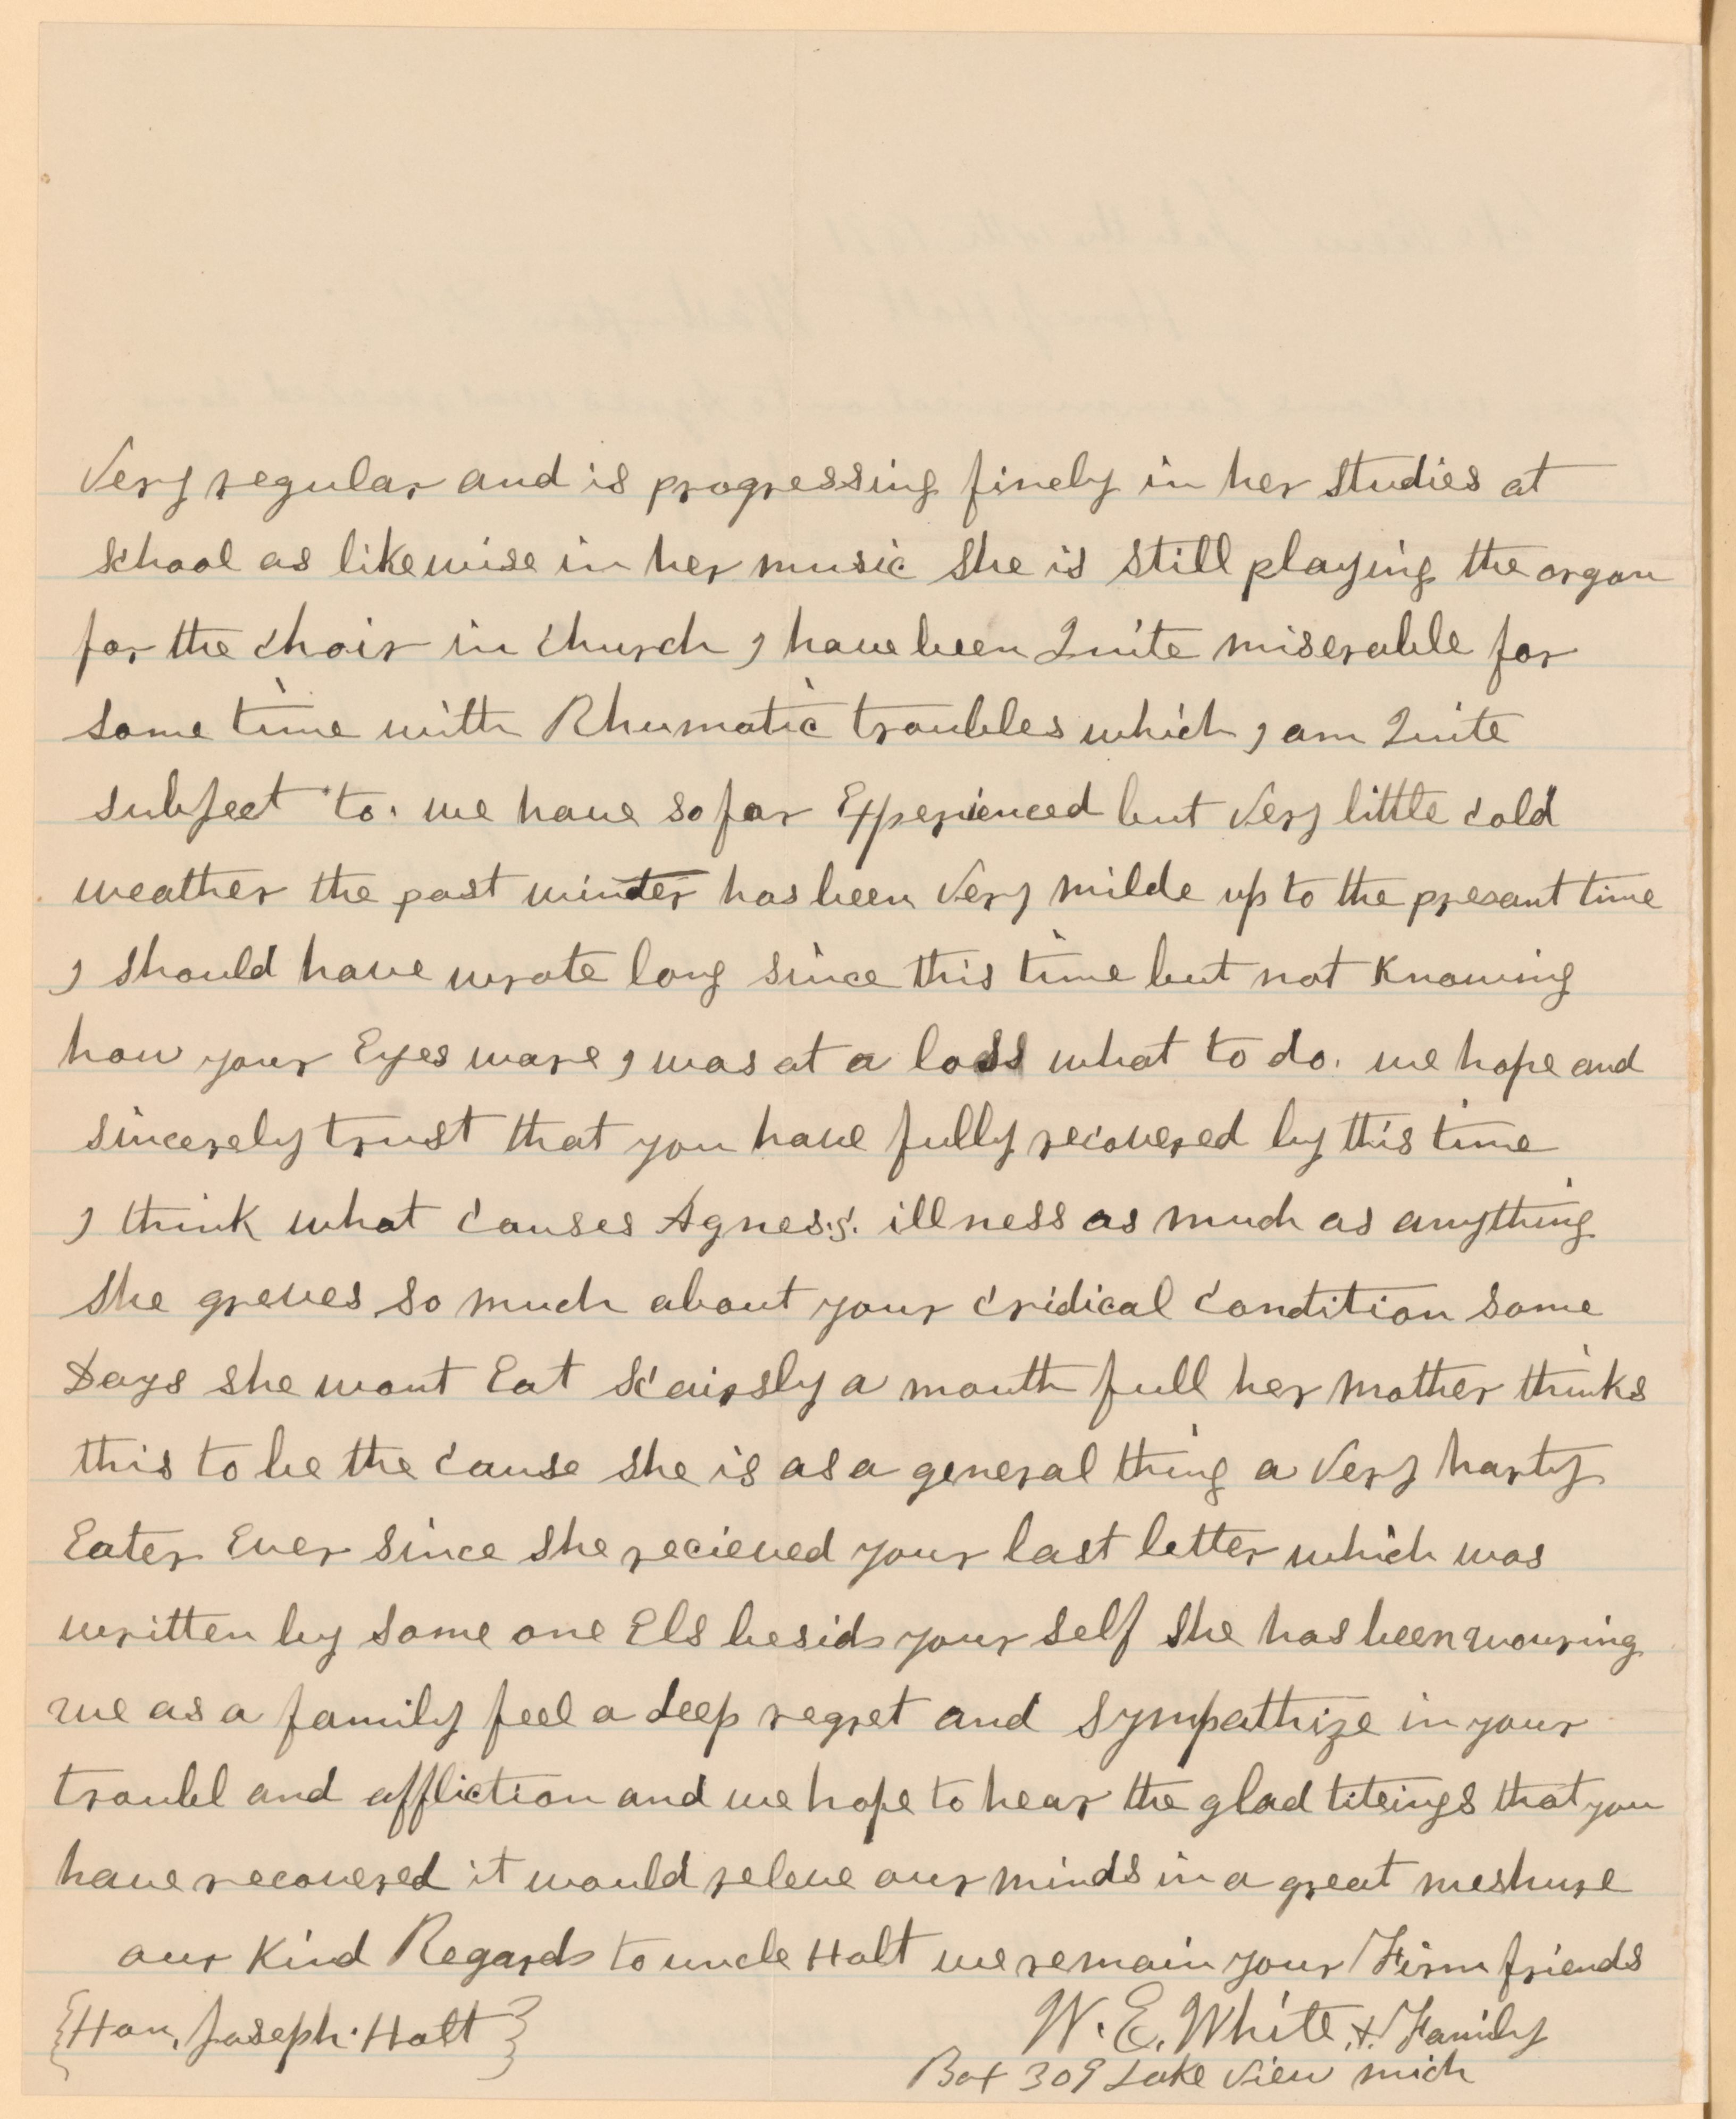 Very regular and is progressing finely in her studies at
school as likewise in her music she is still playing the organ
for the choir in church I have been Quite miserable for
some time with Rhumatic troubles which I am Quite
subject to. we have so far Experienced but Very little cold
weather the past winter has been Very milde up to the presant time
I should have wrote long since this time but not Knowing
how your Eyes ware I was at a loss what to do. we hope and
sincerely trust that you have fully recovered by this time
I think what causes Agnes,s. illness as much as anything
she greves so much about your cridical condition some
Days she wont Eat scairsly a mouth full her mother thinks
this to be the cause she is as a general thing a Very harty
Eater Ever since she recieved your last letter which was
written by some one Els besids your self she has been wouring
we as a family feel a deep regret and sympathize in your
troubl and affliction and we hope to hear the glad titeings that you
have recovered it would releve our minds in a great meshure
our Kind Regards to uncle Holt we remain your Firm friends
{Hon, Joseph. Holt}
W. E. White, & Family
Box 309 Lake View mich